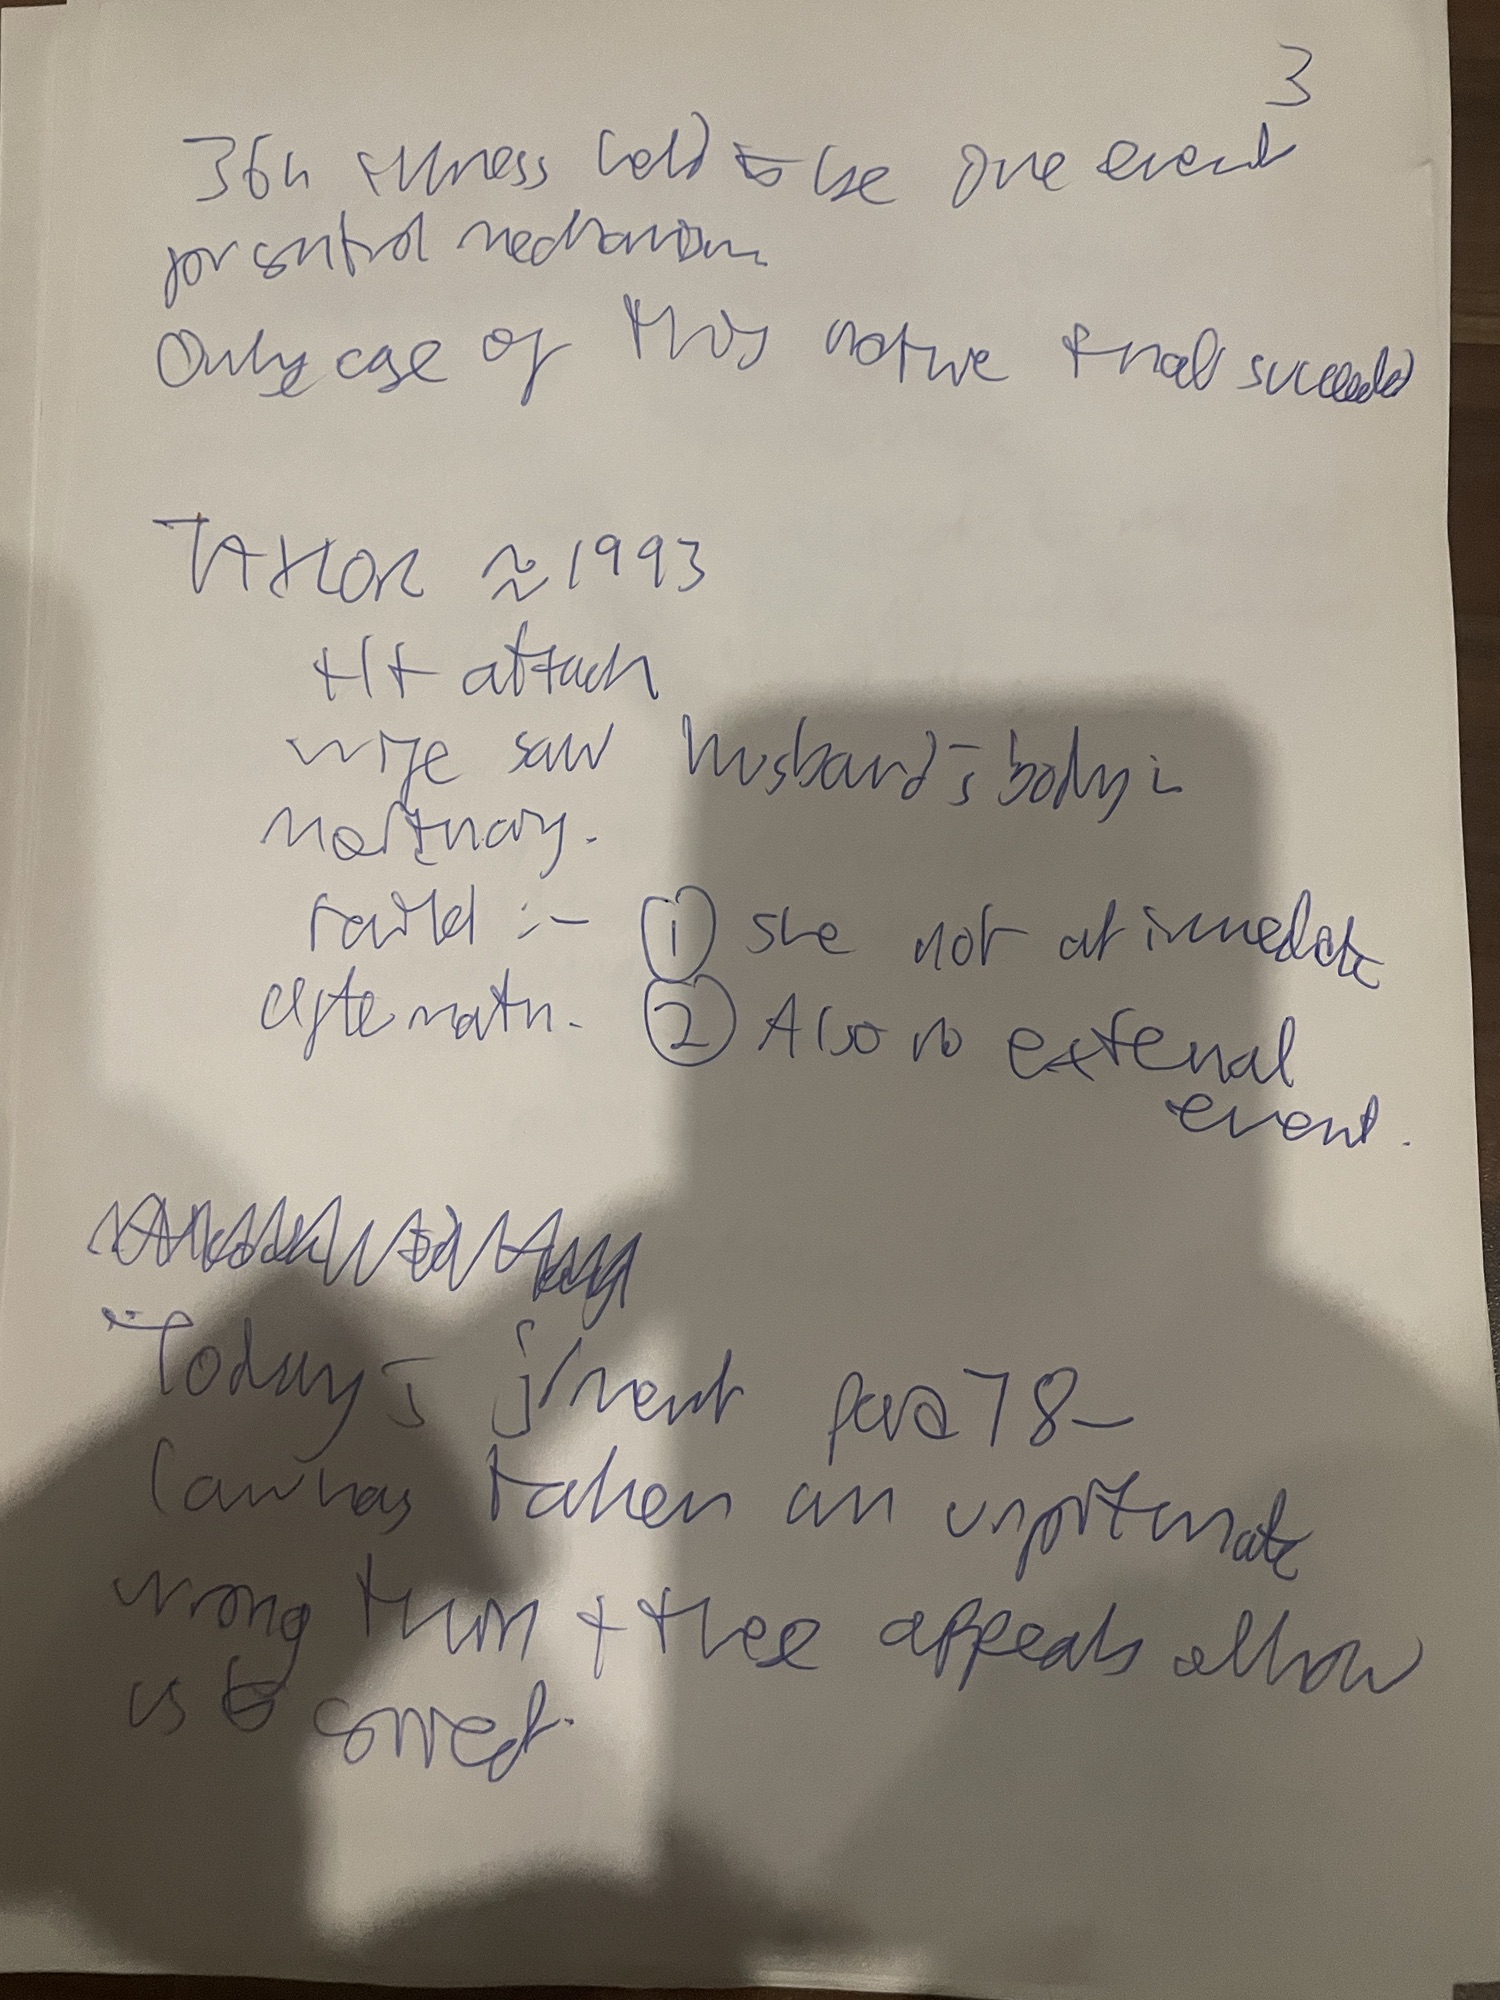 3
36h illness held to be one event
for control mechanism.
Only case of this nature that succeeded
TAYLOR ≈ 1993
Ht attack
wife saw husband's body in
mortuary.
failed :- ① she not at immediate
aftermath. ② Also no external
event.
Today's j/ment para 78 -
Law has taken an unfortunate
wrong turn + these appeals allow
us to correct.